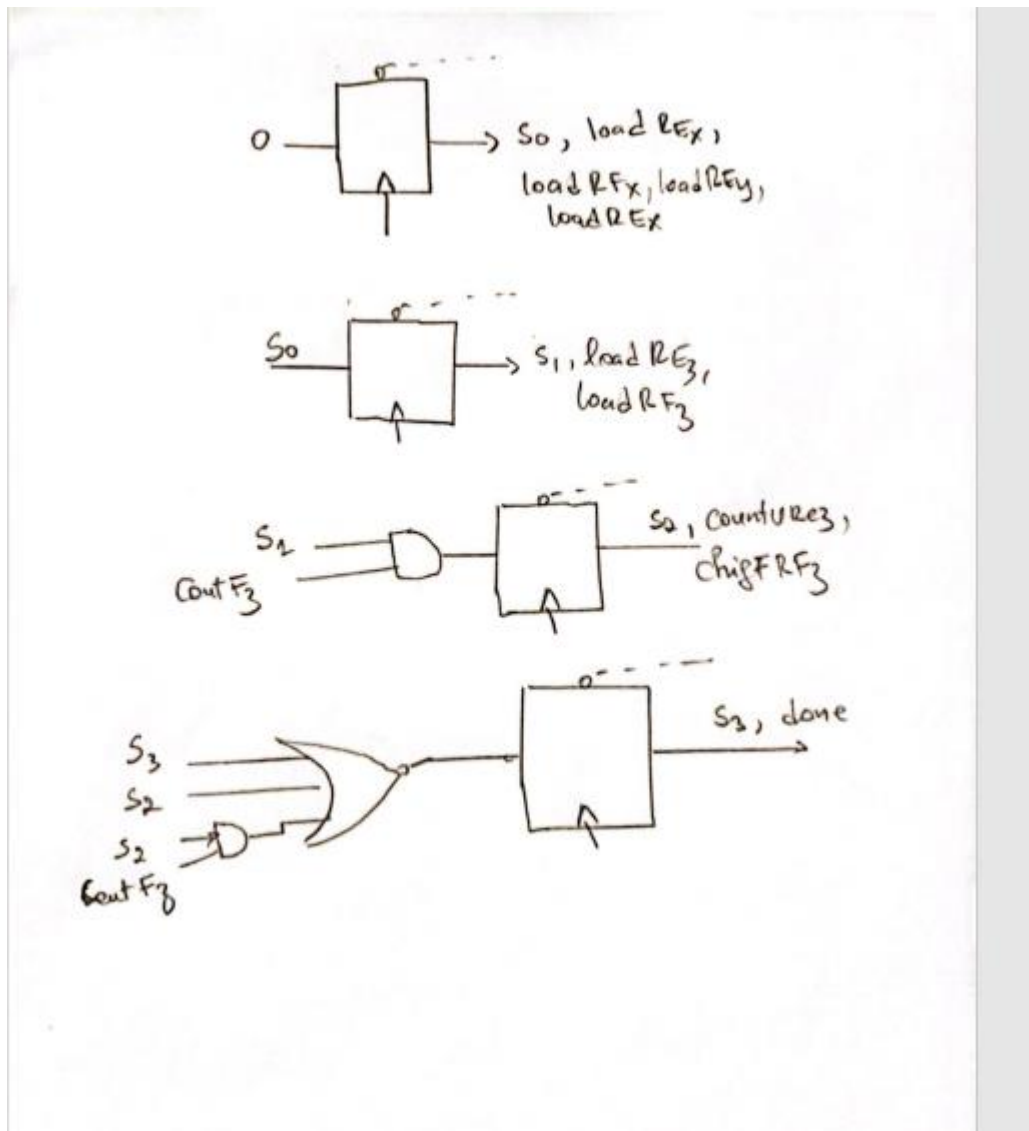 0
S0, load REx,
load RFx, load REy,
load REx
S0
S1, load REz,
load RFz
S1
Cout Fz
S2, countu REz,
S3, done
S3
S2
S2
Cout Fz